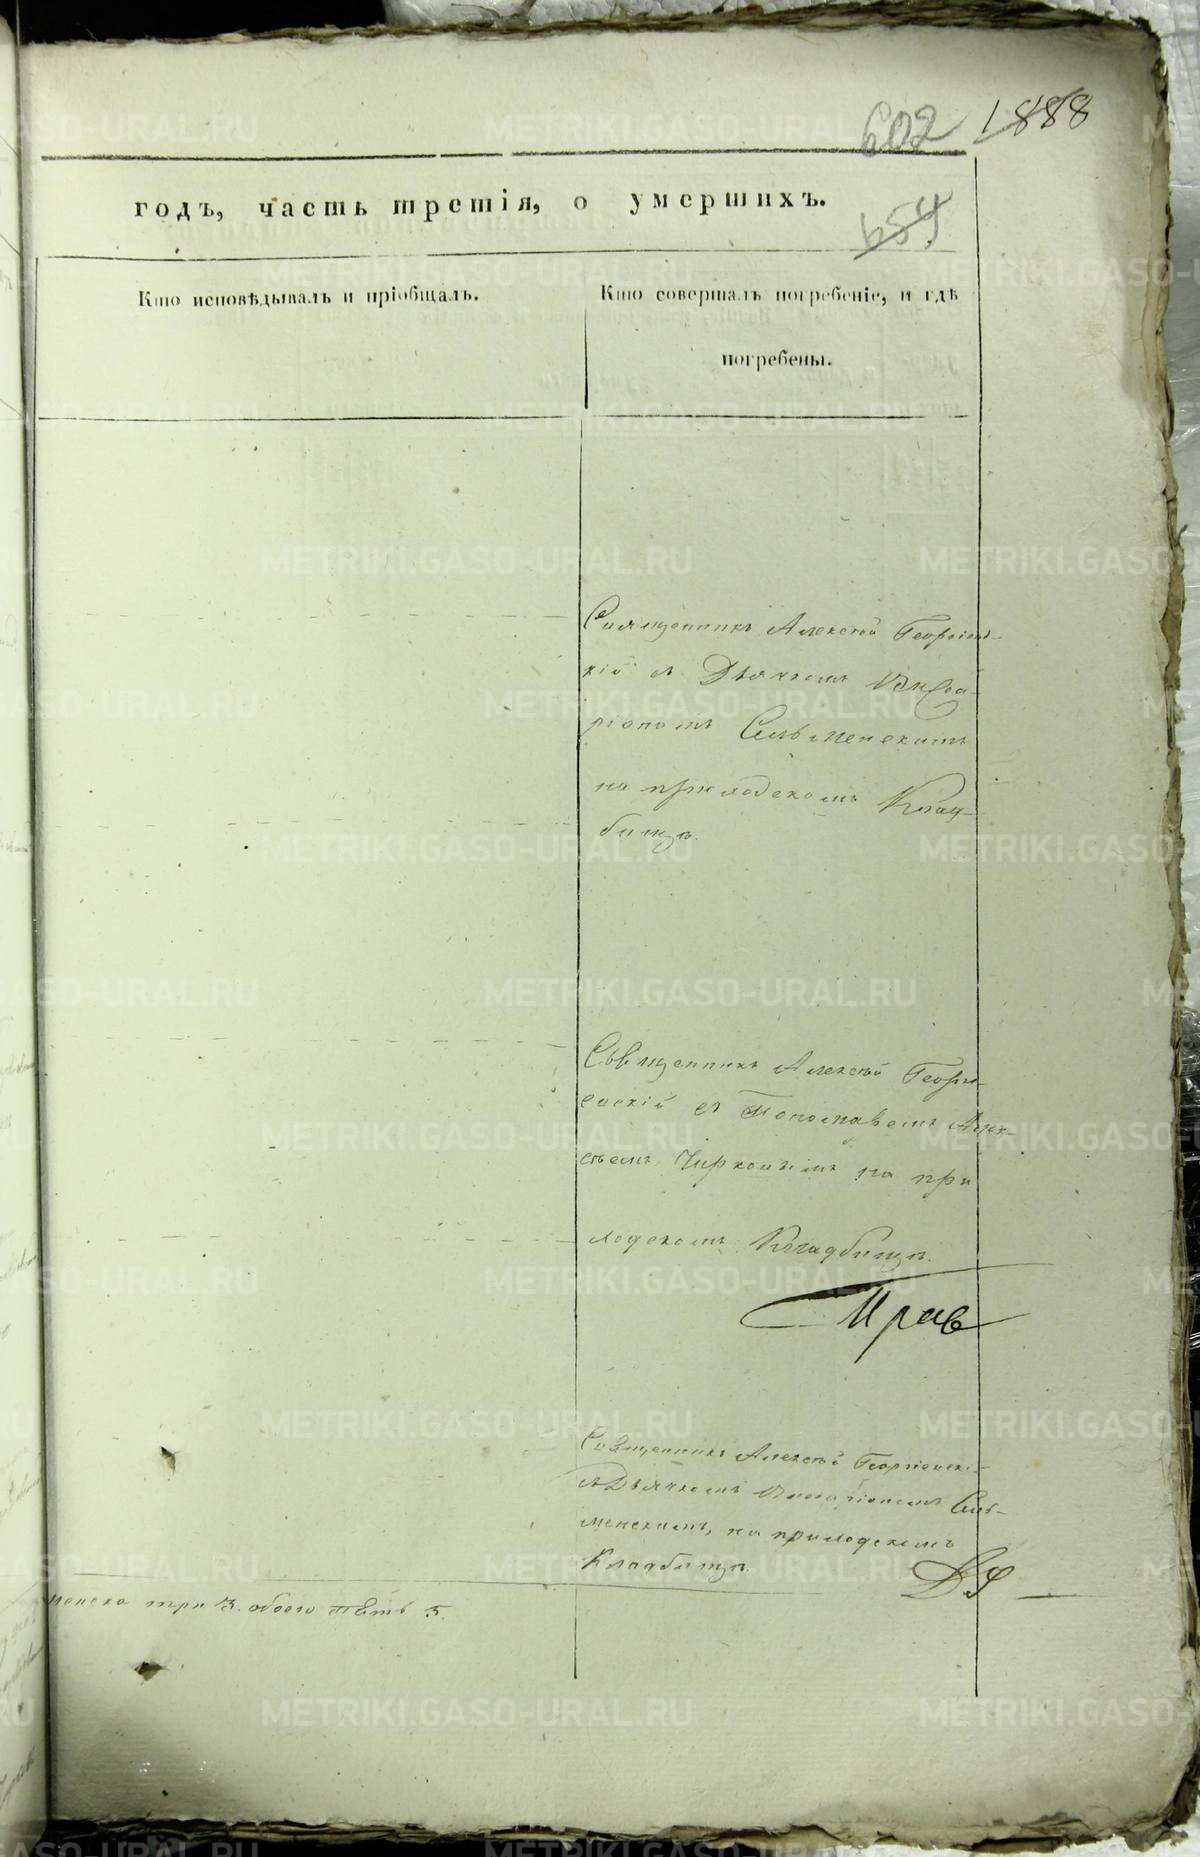 602 1888
годъ, часть третія, о умершихъ.
654
Кто исповѣдывалъ и пріобщалъ.
Кто совершалъ погребеніе, и гдѣ
погребены.
Священникъ Алексѣй Георгіевс-
кій съ Дьячкомъ Висса-
ріономъ Сельменскимъ
на приходскомъ Клад-
бищѣ.
Священникъ Алексѣй Георгі-
евскій съ Пономаремъ Алек-
сѣемъ Чирковымъ на при
ходскомъ Кладбищѣ.
Прав
Священникъ Алексѣй Георгіевскі-
съ Дьячкомъ Виссаріономъ Сель-
менскимъ, на приходскомъ
Кладбищѣ.
женска три 3. обоего пять 5.
METRIKI.GASO-URAL.RU